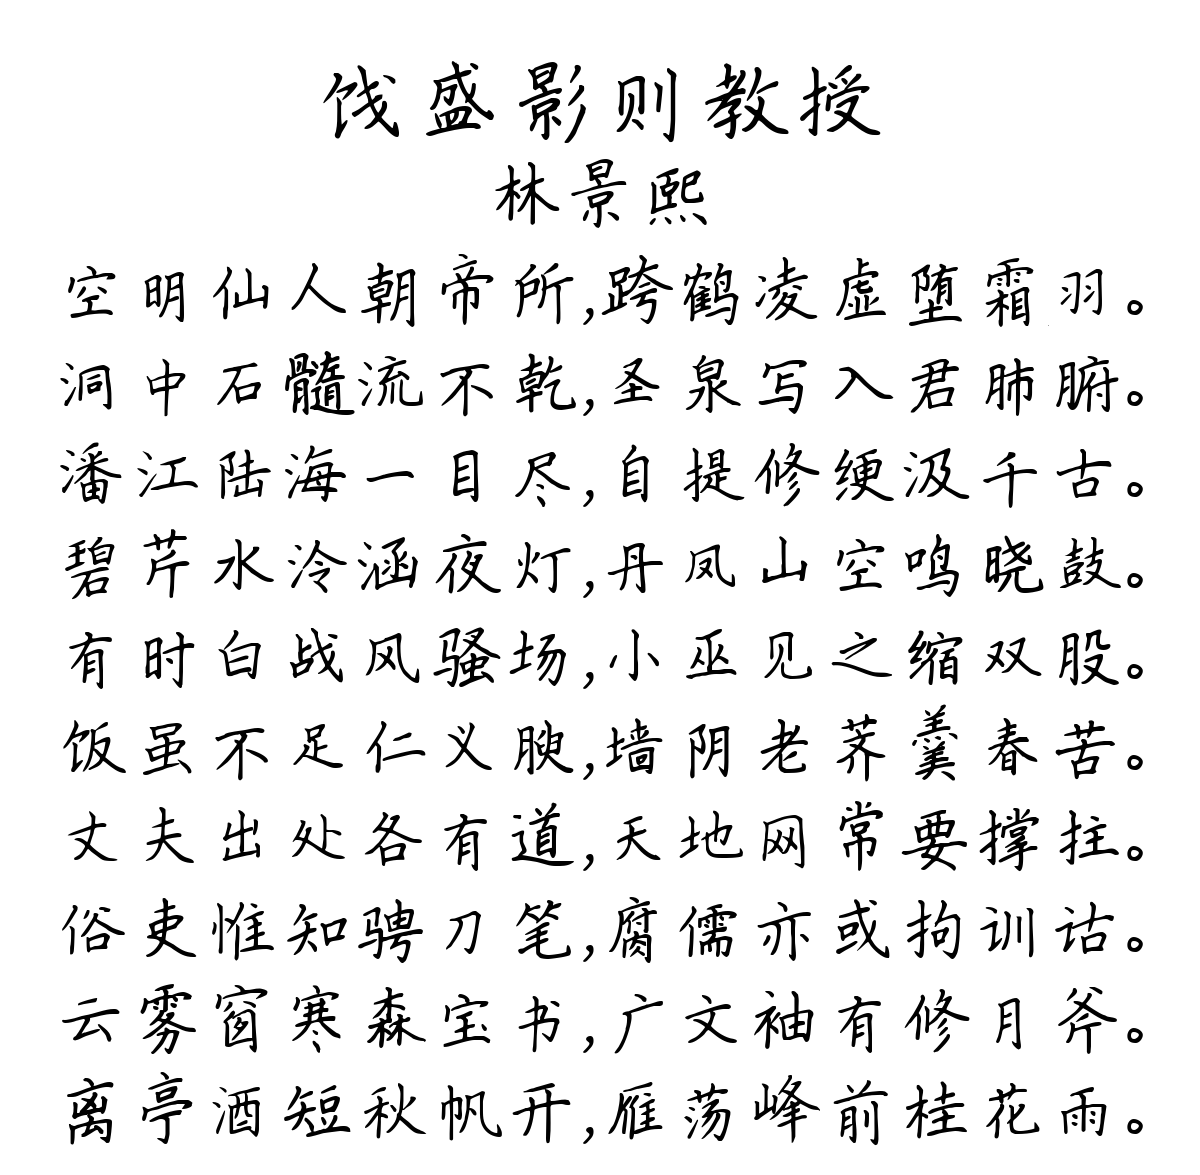 饯盛影则教授
林景熙
空明仙人朝帝所,跨鹤凌虚堕霜羽。
洞中石髓流不乾,圣泉写入君肺腑。
潘江陆海一目尽,自提修绠汲千古。
碧芹水冷涵夜灯,丹凤山空鸣晓鼓。
有时白战风骚场,小巫见之缩双股。
饭虽不足仁义腴,墙阴老荠羹春苦。
丈夫出处各有道,天地网常要撑拄。
俗吏惟知骋刀笔,腐儒亦或拘训诂。
云雾窗寒森宝书,广文袖有修月斧。
离亭酒短秋帆开,雁荡峰前桂花雨。